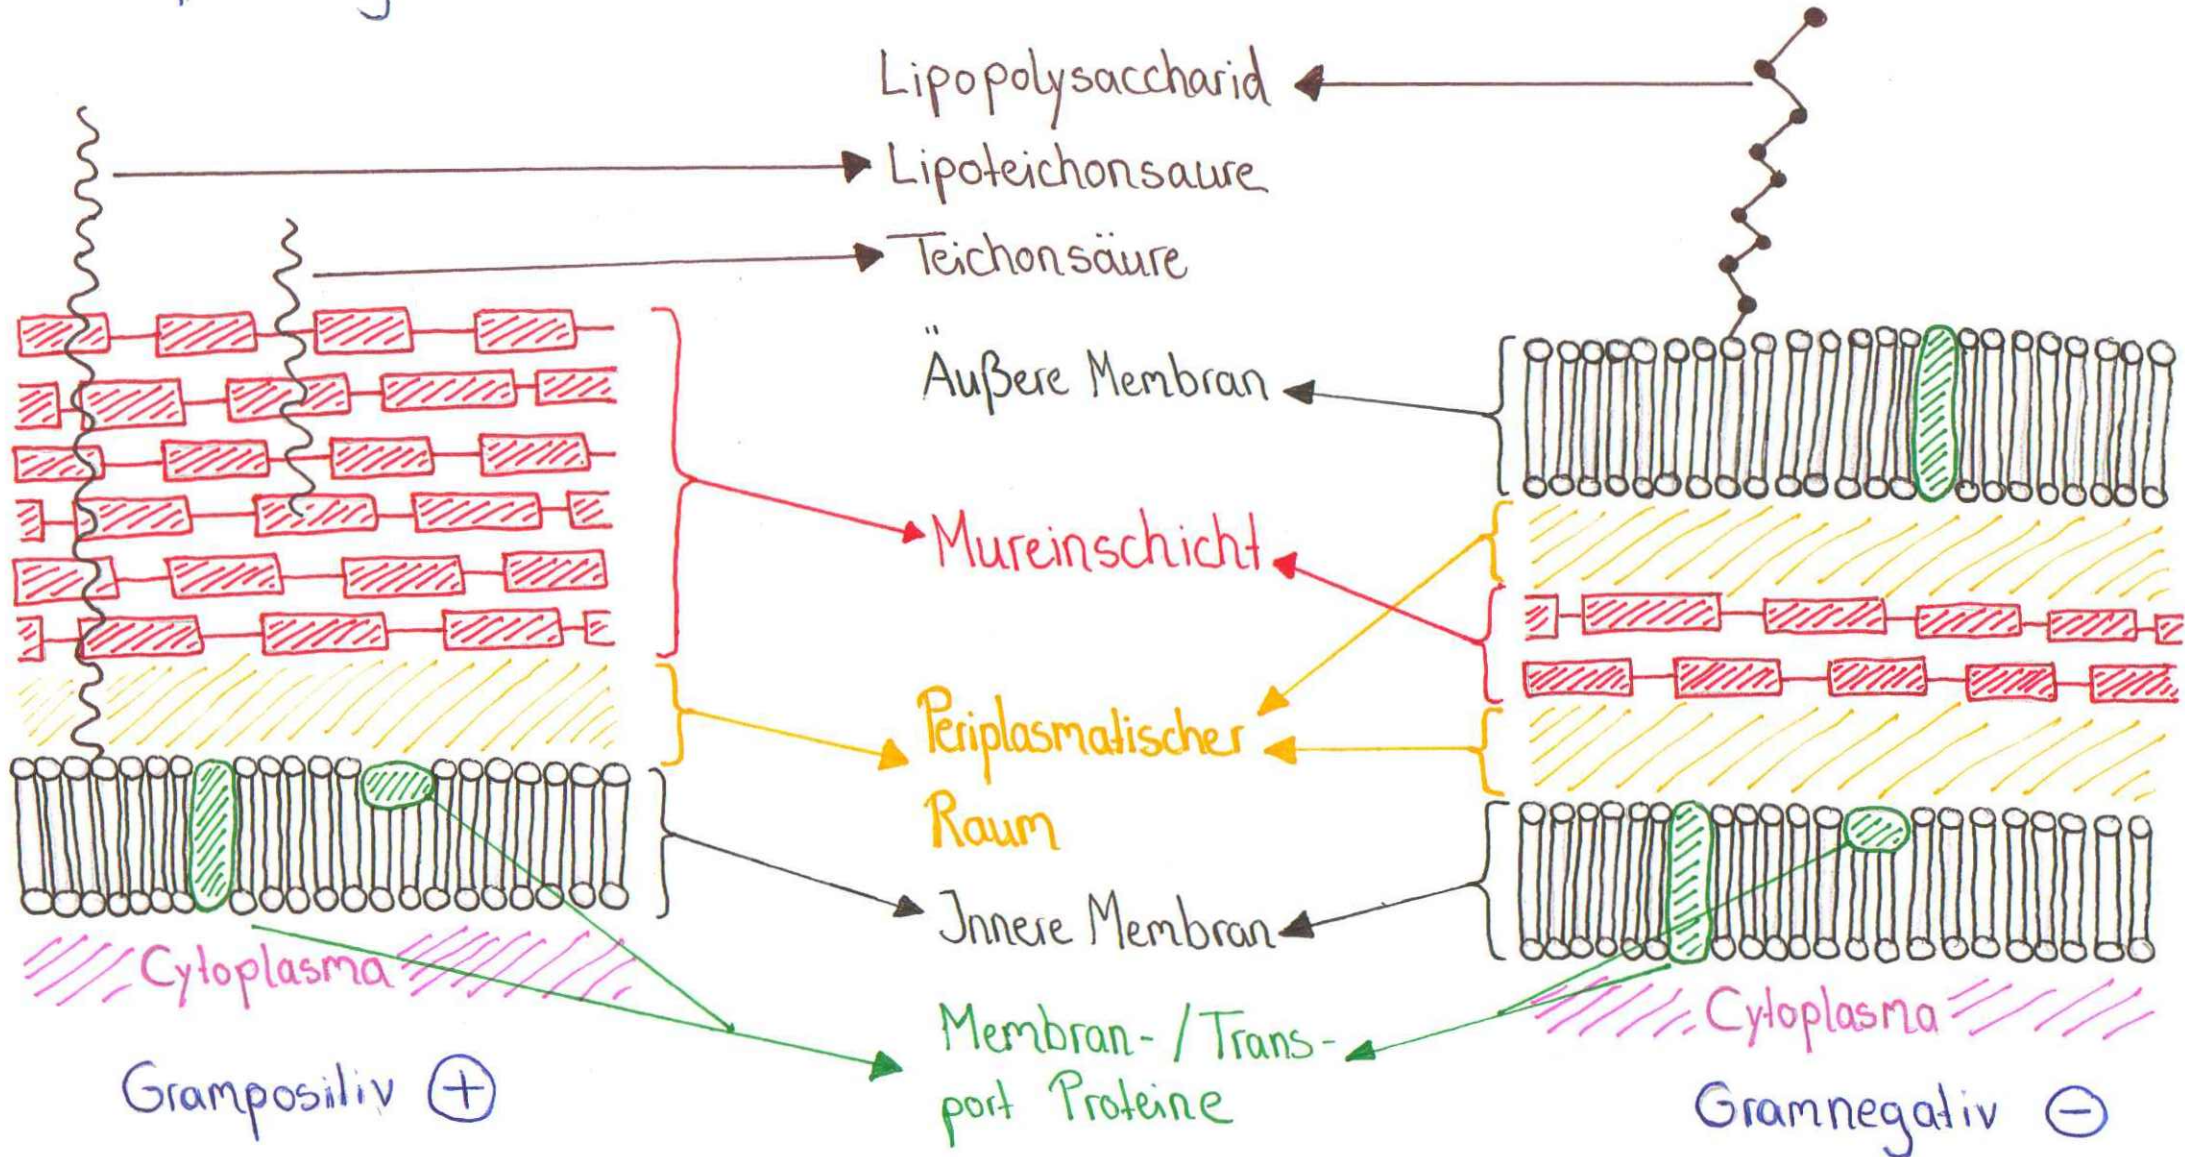 Lipopolysaccharid
Lipoteichonsaure
Teichonsäure
Äußere Membran
Mureinschicht
Periplasmatischer
Raum
Innere Membran
Cytoplasma
Cytoplasma
Membran-/Trans-
port Proteine
Grampositiv +
Gramnegativ −